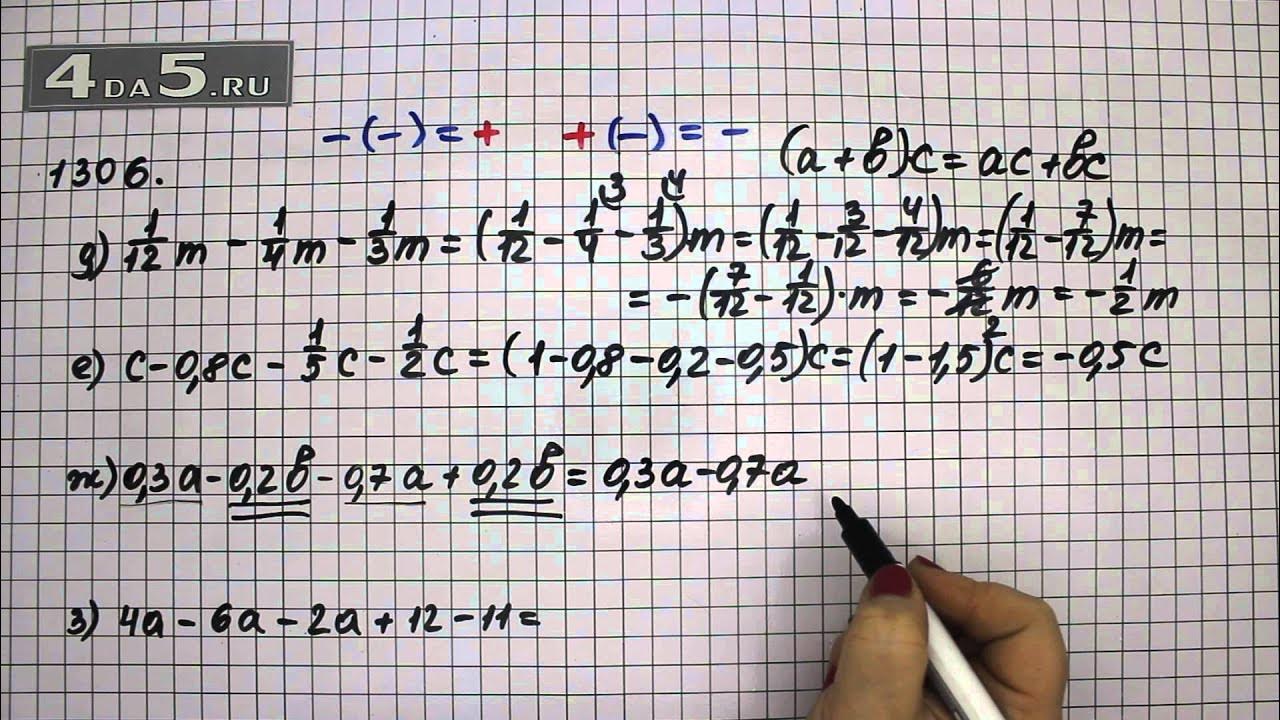 4DA5.RU
-(-)=+ +(-)=-
(a+в)c=ac+вc
1306.
д) 1/12 m - 1/4 m - 1/3 m = (1/12 - 1/4 ³ - 1/3 ⁴)m = (1/12 - 3/12 - 4/12)m = (1/12 - 7/12)m =
= -(7/12 - 1/12)·m = -6/12 m = -1/2 m
2
е) c-0,8c - 1/5 c - 1/2 c = (1-0,8-0,2-0,5)c = (1-1,5)c = -0,5c
ж) 0,3a-0,2в-0,7a+0,2в = 0,3a-0,7a
з) 4a-6a-2a+12-11=